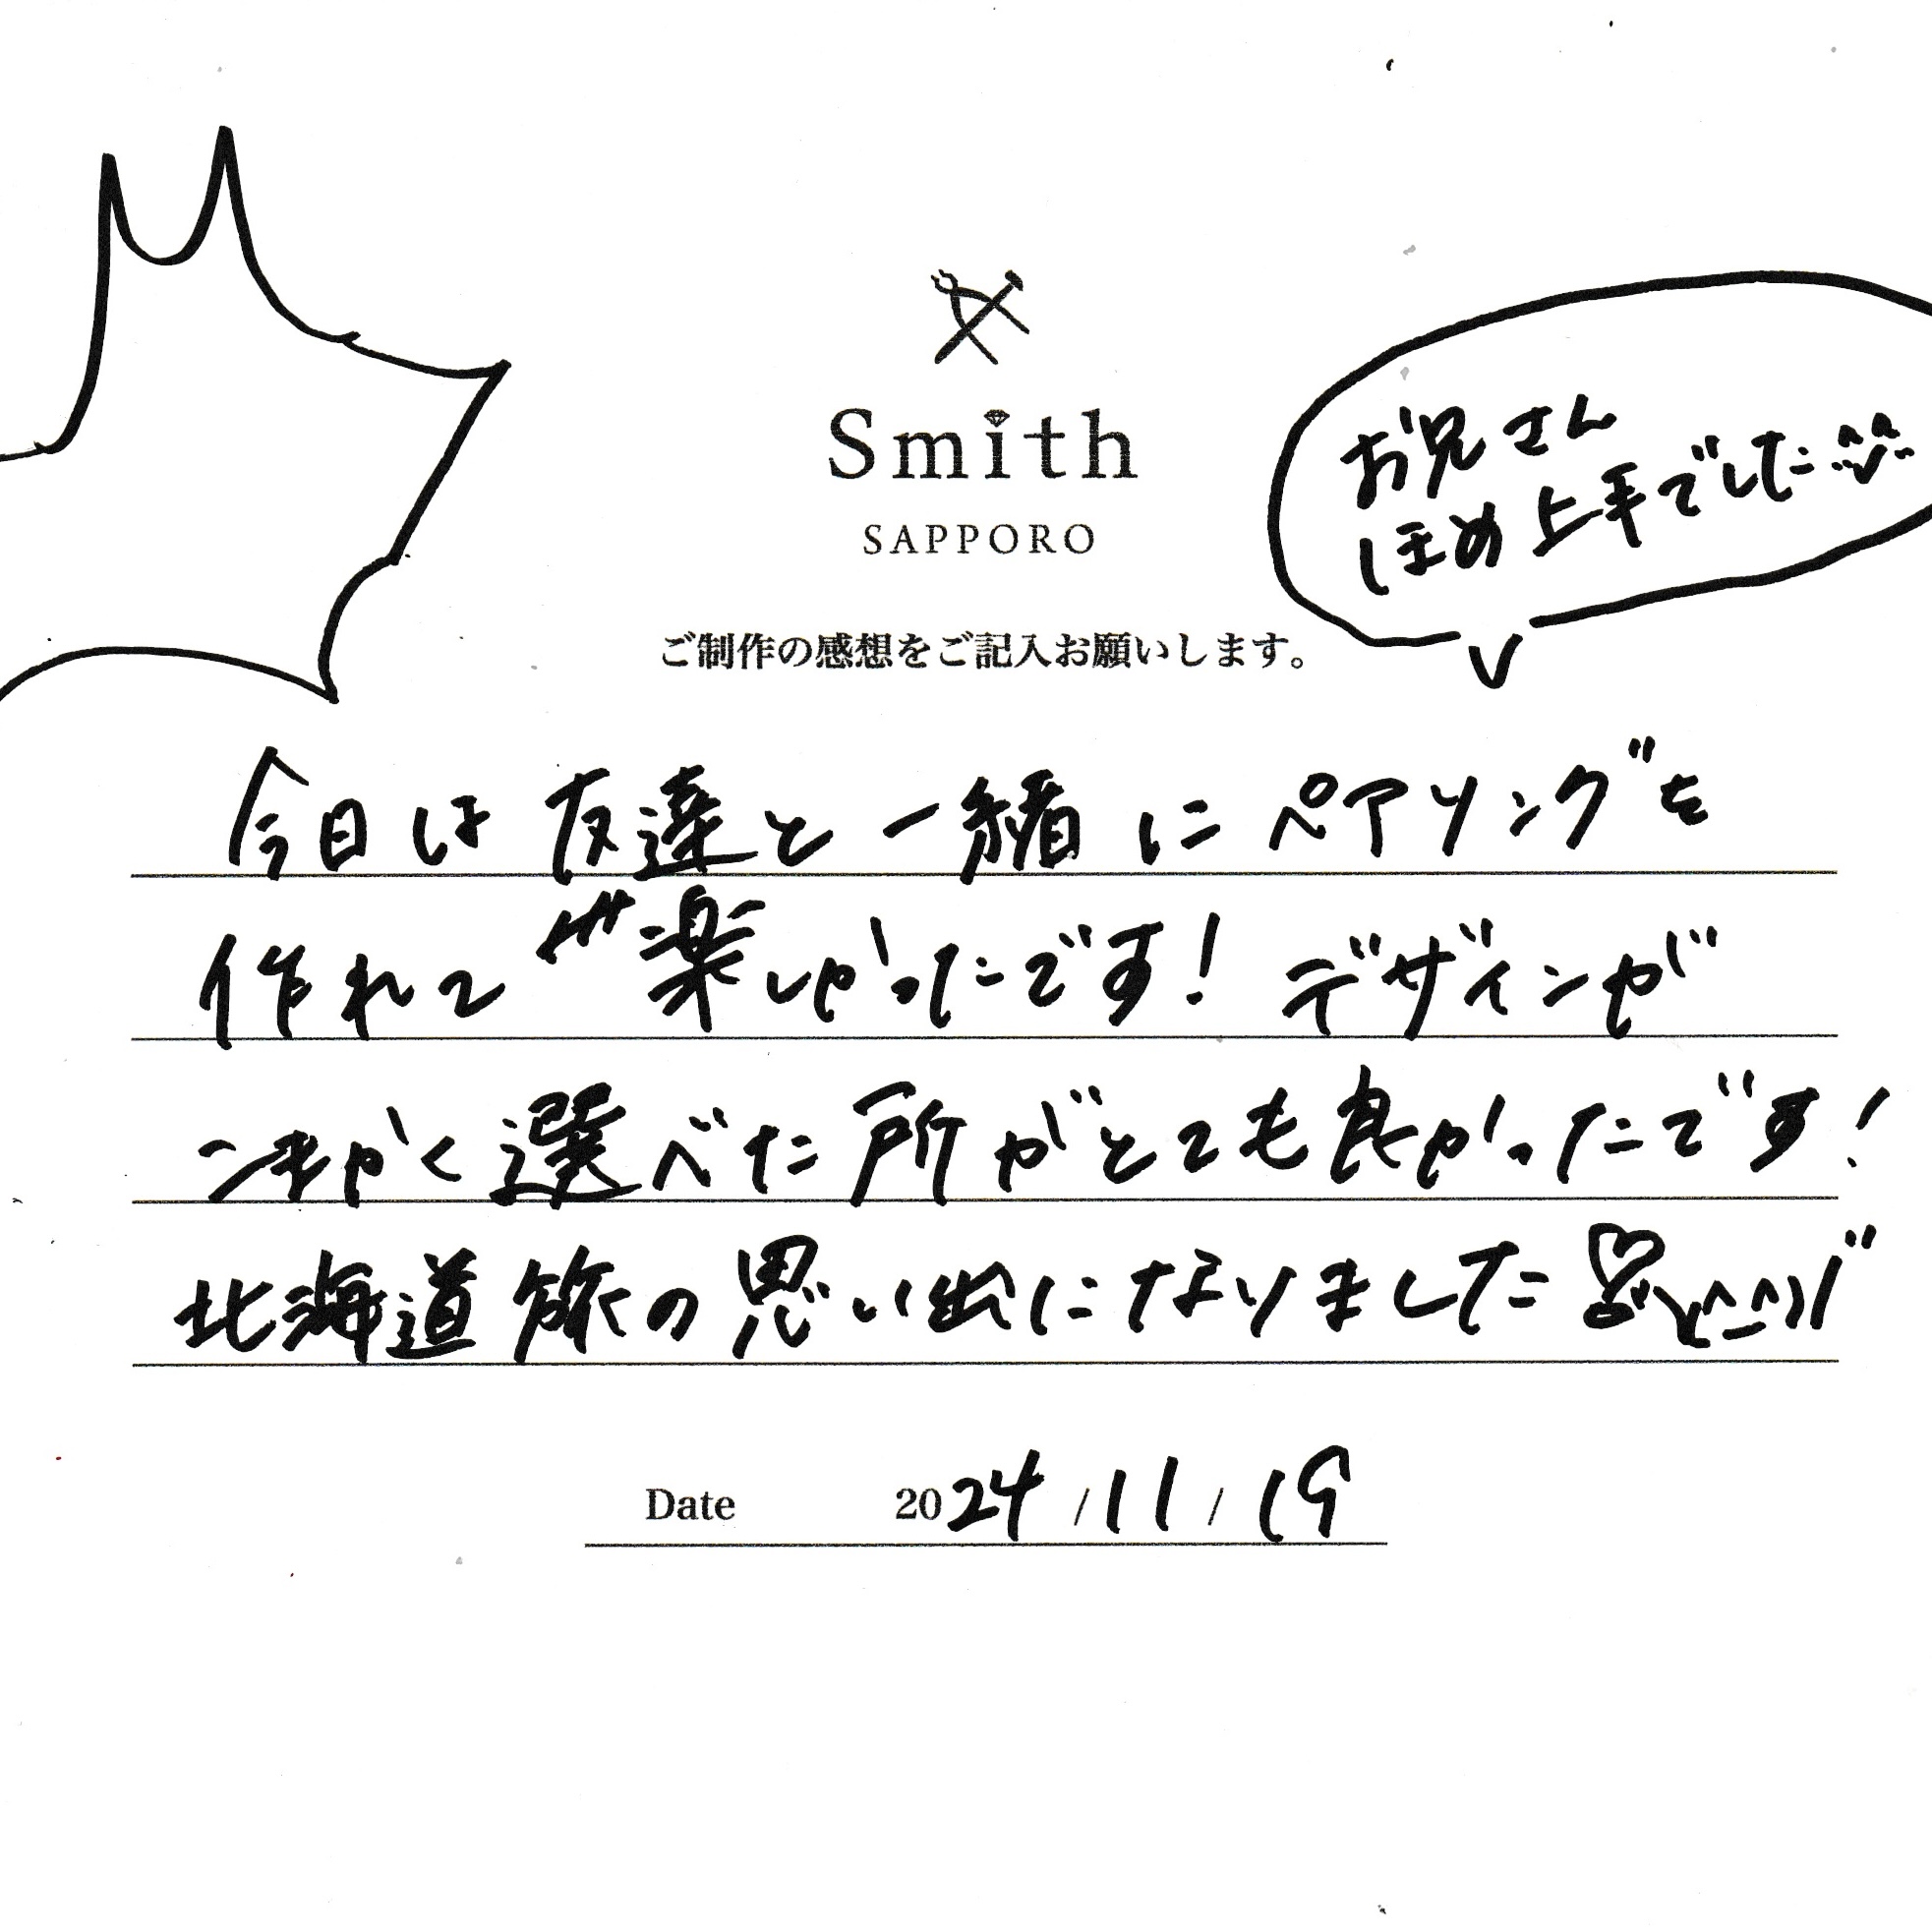 Smith
SAPPORO
お兄さん
ほめ上手でした
ご制作の感想をご記入お願いします。
今日は友達と一緒にペアリングを
作れて楽しかったです！デザインが
こまかく選べた所がとても良かったです！
北海道旅の思い出になりました
Date 2024/11/19